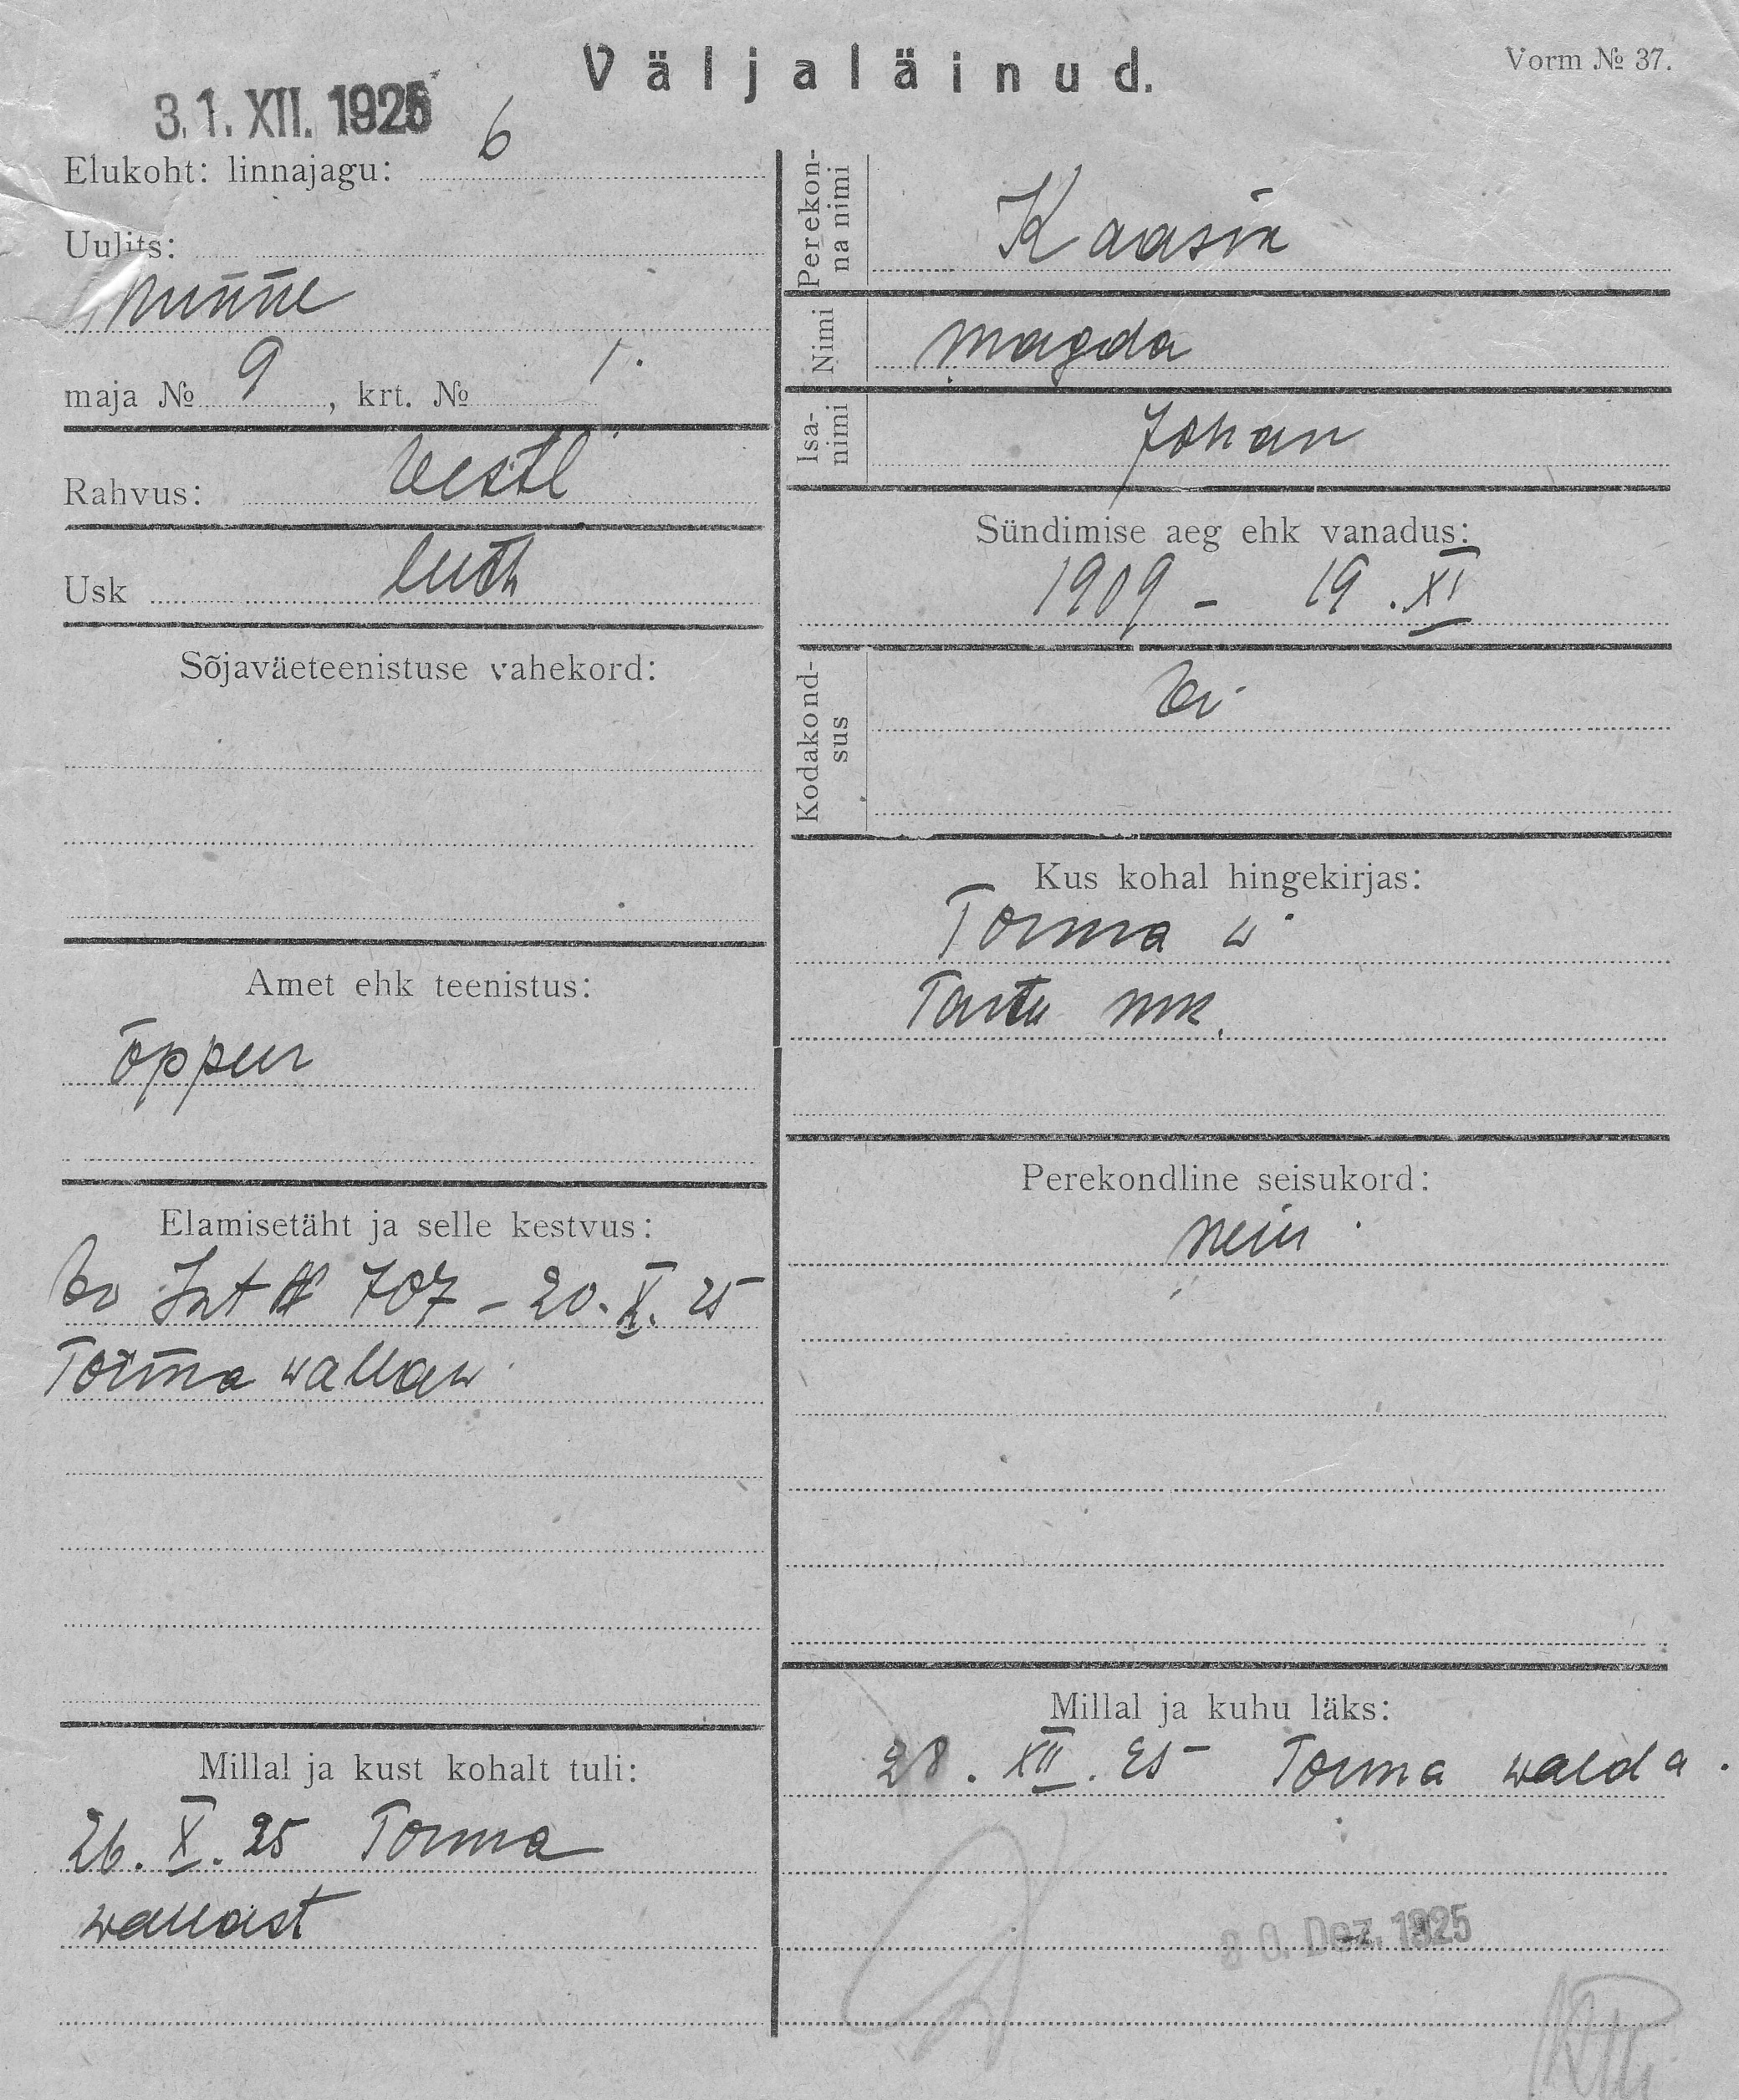 Väljaläinud.
Vorm № 37.
31. XII. 1925
Elukoht: linnajagu: 6
Uulits:
maja № 9, krt. № 1.
Rahvus: eestl
Usk luth
Sõjaväeteenistuse vahekord:
Amet ehk teenistus:
õppur
Elamisetäht ja selle kestvus:
707 – 20. X. 25
Torma wallaw
Millal ja kust kohalt tuli:
26. X. 25 Torma
wallast
Perekonna nimi Kaasik
Nimi Magda
Isanimi Johan
Sündimise aeg ehk vanadus:
1909 – 19. XI
Kodakondsus
Kus kohal hingekirjas:
Torma w
Tartu mk.
Perekondline seisukord:
neiu
Millal ja kuhu läks:
28. XII. 25 Torma walda.
30. Dez. 1925